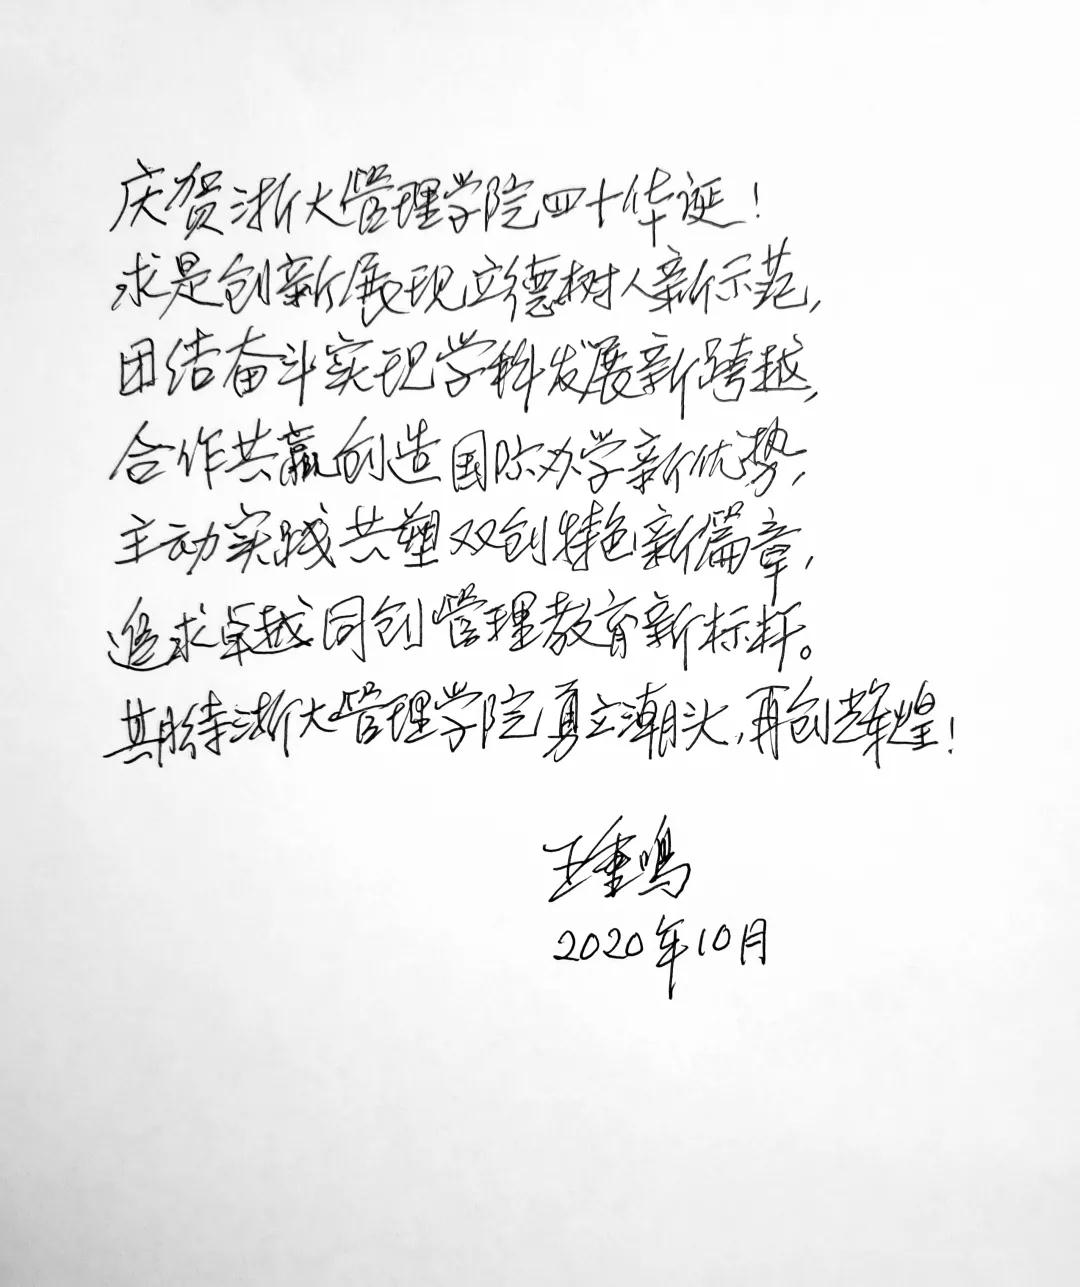 庆贺浙大管理学院四十华诞！
求是创新展现立德树人新示范，
团结奋斗实现学科发展新跨越，
合作共赢创造国际办学新优势，
主动实践共塑双创特色新篇章，
追求卓越同创管理教育新标杆。
期待浙大管理学院勇立潮头，再创辉煌！
王重鸣
2020年10月